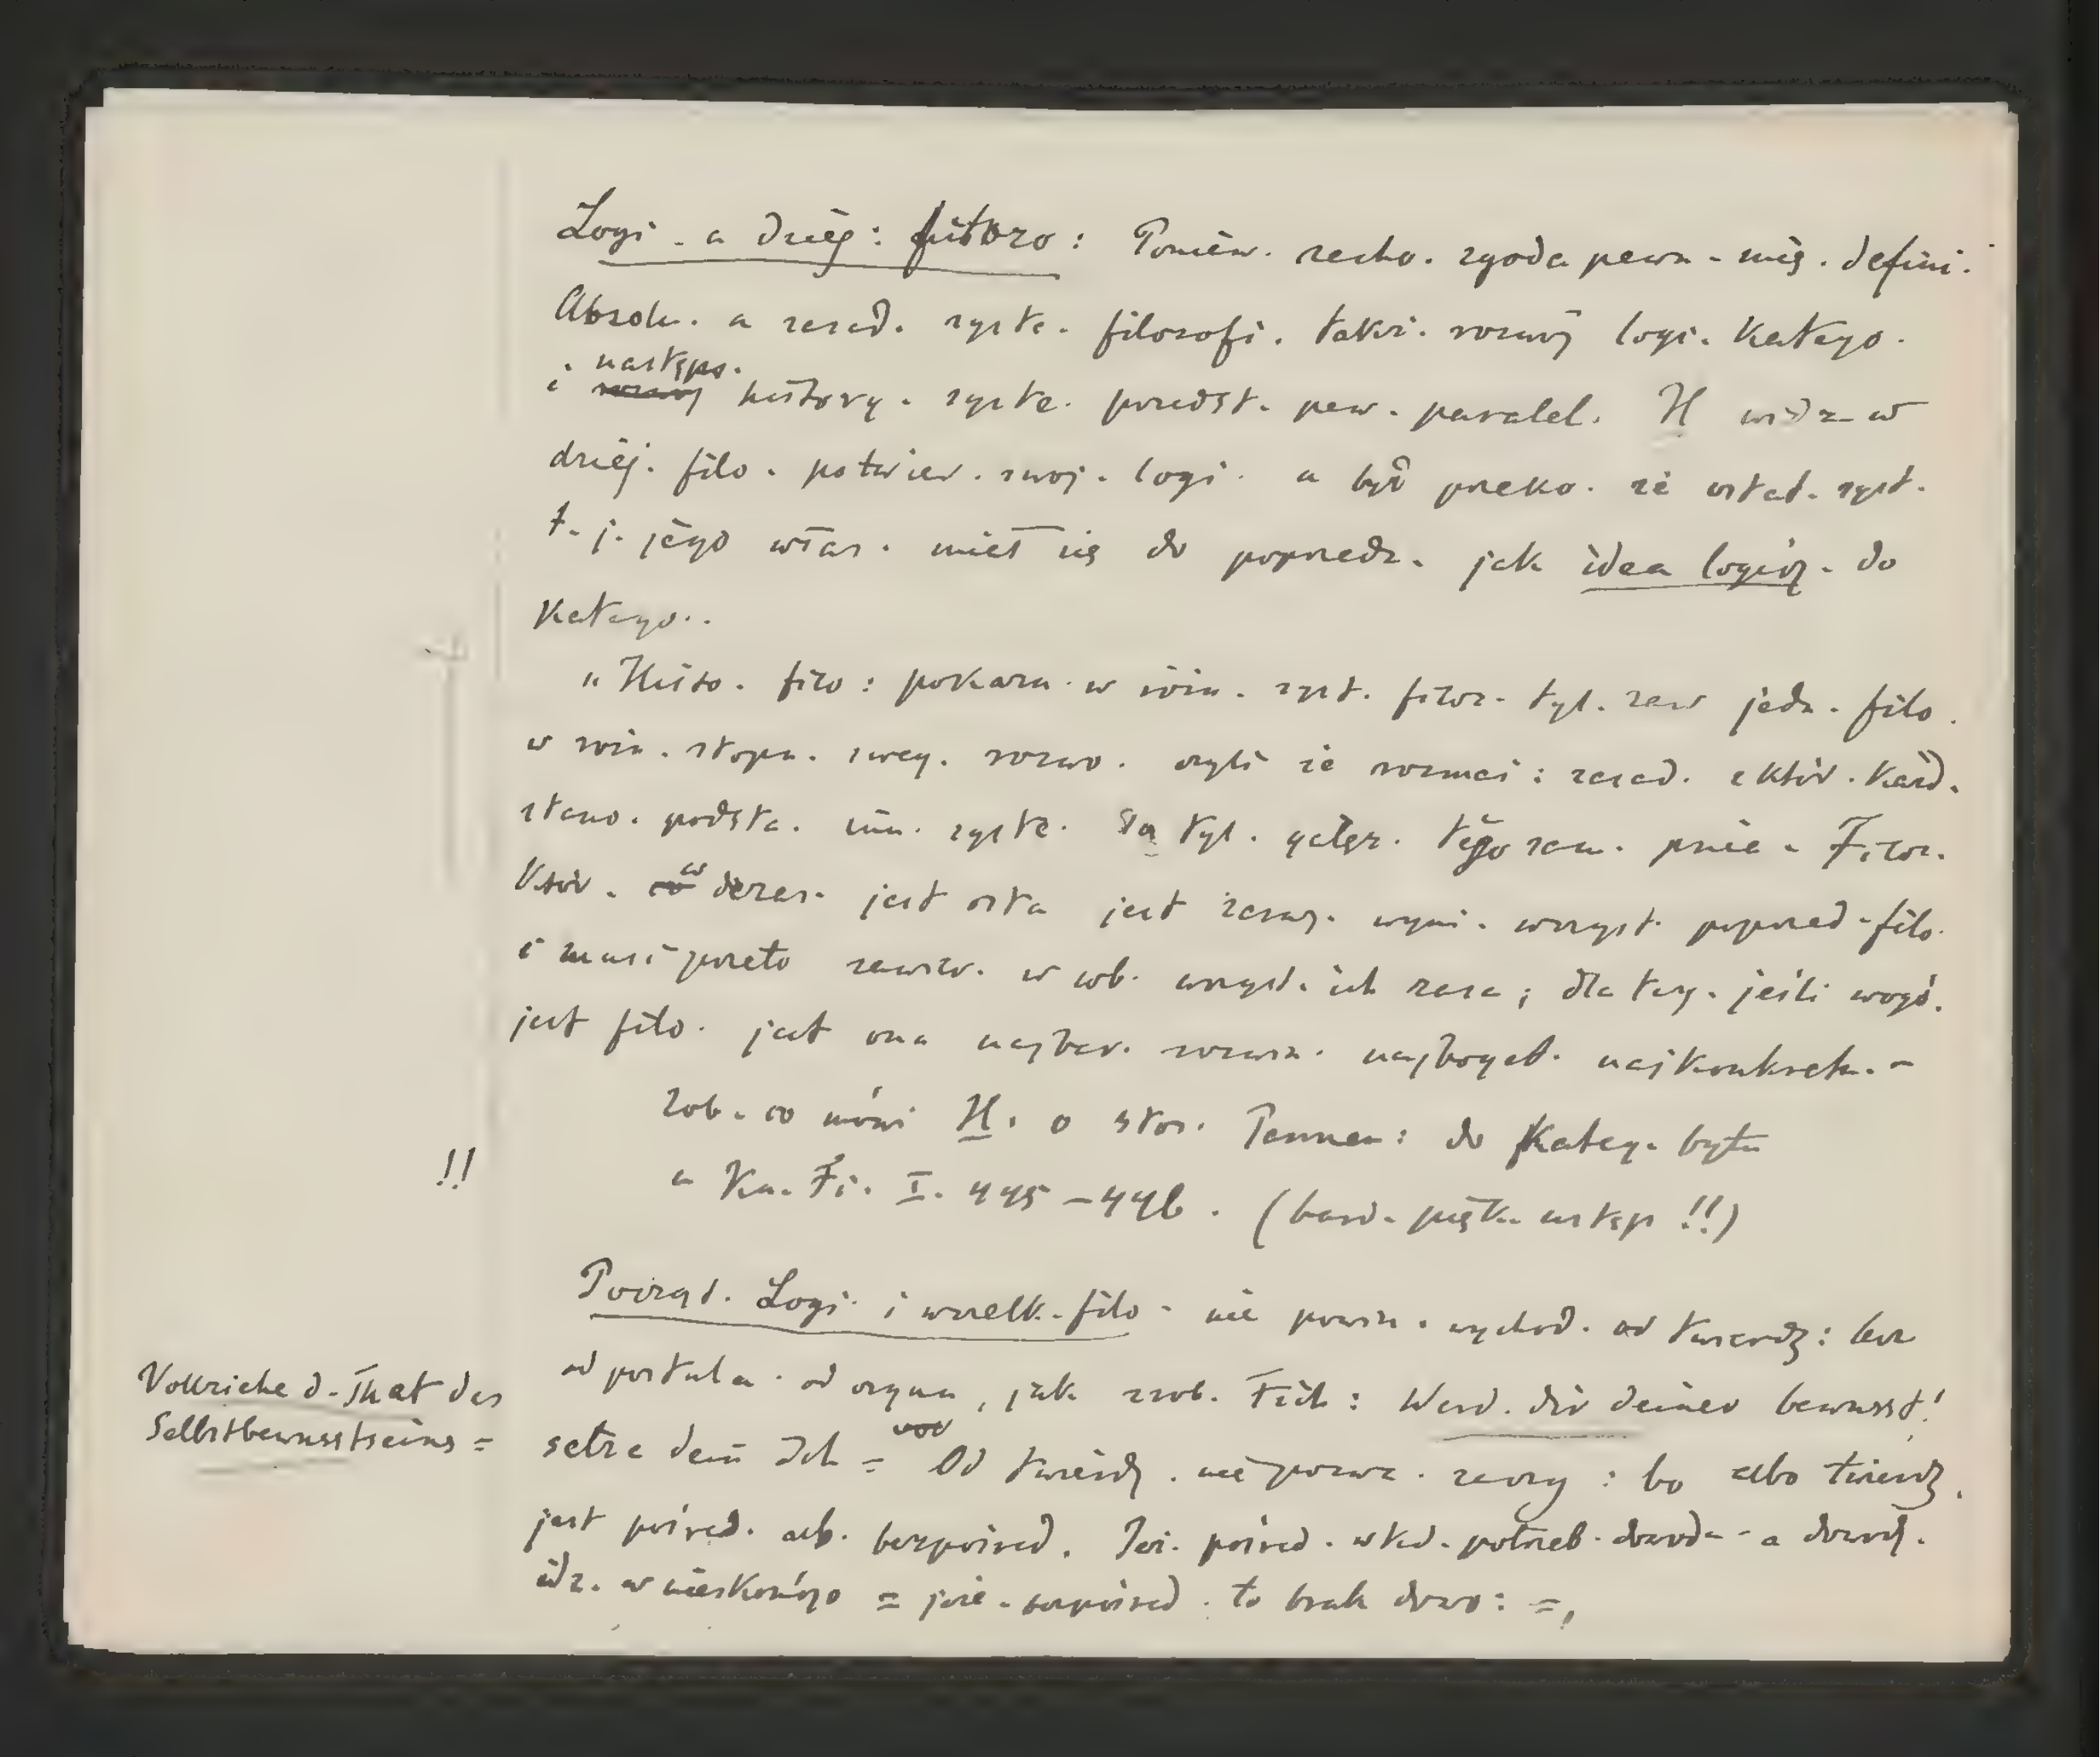 Logi. a dziej: filozo: Poniew. zacho. zgoda pewn. mię. defini.
Absolu. a zasad. syste. filozofi. także. rozwój logi. katego.
i następs. history. syste. przedst. pew. paralel. H widz. w
dziej. filo. potwier. swoj. logi. a był przeko. że ostat. syst.
t. j. jego włas. miał się do poprzedz. jak idea logicz. do
katego..
„Histo. filo: pokazu. w różn. syst. filoz. tyl. zaw jedn. filo.
w różn. stopn. sweg. rozwo. czyli że rozmai: zasad. z któr. każd.
stano. podsta. inn. syste. są tyl. gałęz. tego sam. pnia. Filoz.
któr. co w czas. jest osta jest zaraz. wyni. wszyst. poprzed. filo.
i musi przeto zawier. w sob. wszyst. ich zasa; dla teg. jeśli wogó.
jest filo. jest ona najbar. rozwin. najbogat. najkonkretn. -
Zob. co mówi H. o stos. Parmen: do kateg. bytu
u Ku. Fi. I. 445 - 446. (bard. piękn. ustęp !!)
!!
Począt. Logi. i wszelk. filo. nie powin. wychod. od twierdz: lecz
od postula. od czynu, jak zrob. Fich: Werd. dir deiner bewusst!
Vollziehe d. That des
Selbstbewusstseins =
setze dein Ich = Od twierdz. nie można. zaczy: bo albo twierdz.
jest pośred. alb. bezpośred. Jeś. pośred. wted. potrzeb. dowodu - a dowod.
idz. w nieskończo = jeśl. bezpośred. to brak dowo: =,